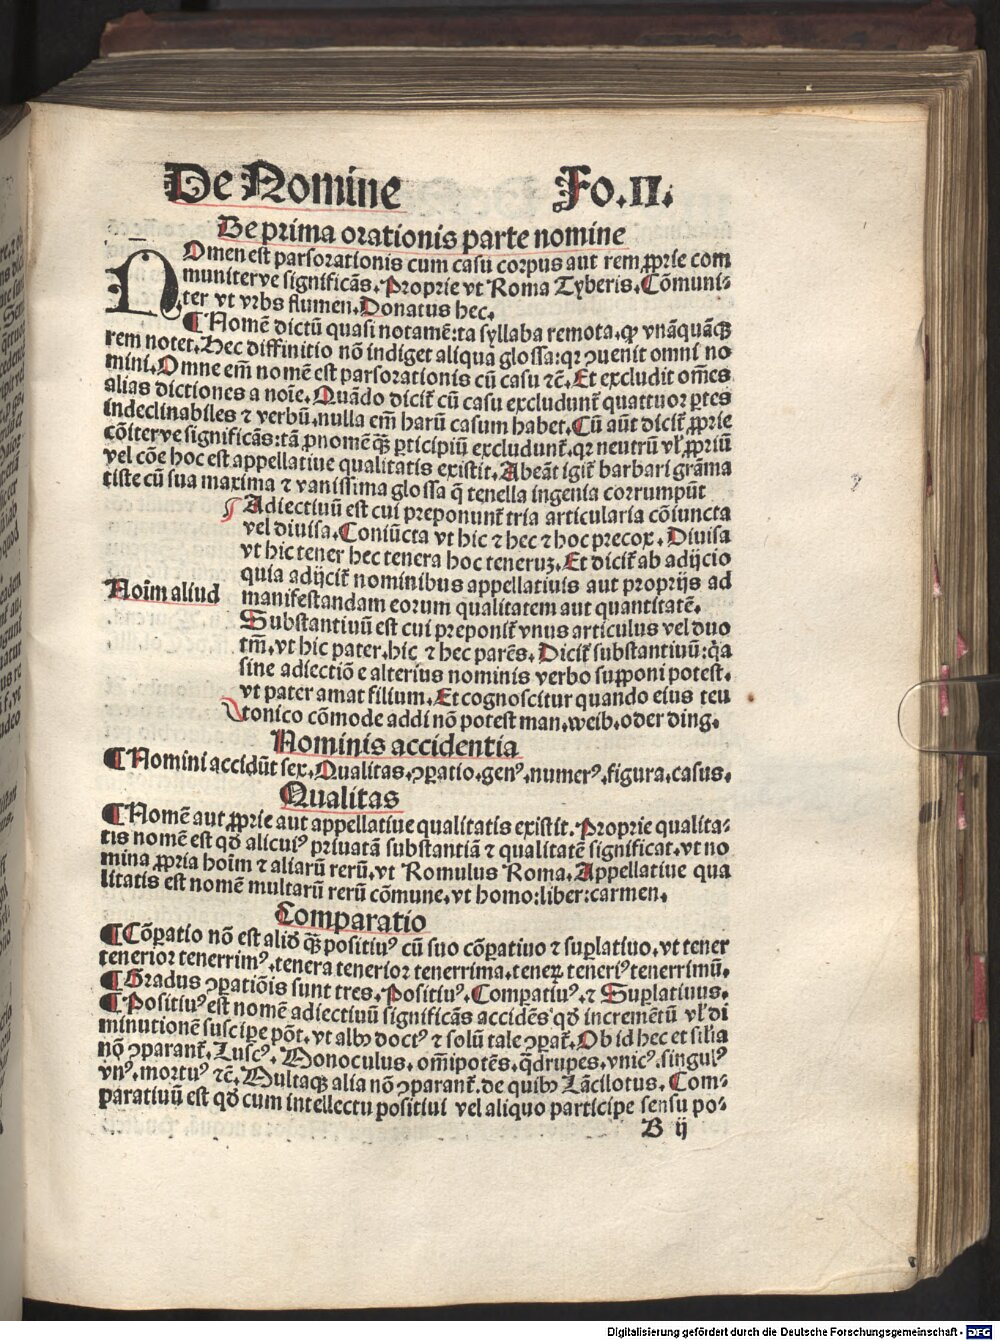 De Nomine Fo.II.
De prima orationis parte nomine
NOmen est pars orationis cum casu corpus aut rem ꝓprie com
muniterve significãs. Proprie vt Roma Tyberis. Cõmuni-
ter vt vrbs flumen. Donatus hec.
¶ Nomẽ dictũ quasi notamẽ: ta syllaba remota. ꝙ vnãquãqȝ
rem notet. Hec diffinitio nõ indiget aliqua glossa: qꝛ ꝯuenit omni no
mini. Omne em̃ nomẽ est pars orationis cũ casu ⁊c̃. Et excludit om̃es
alias dictiones a noĩe. Quãdo dicit᷑ cũ casu excludunt᷑ quattuor ꝑtes
indeclinabiles ⁊ verbũ. nulla em̃ harũ casum habet. Cũ aũt dicit᷑ ꝓprie
cõiterve significãs: tã ꝓnomẽ qȝ̃ ꝑticipiũ excludunt᷑. qꝛ neutrũ vl̕ ꝓpriũ
vel cõe hoc est appellatiue qualitatis existit. Abeãt igit᷑ barbari grãma
tiste cũ sua maxima ⁊ vanissima glossa q̃ tenella ingenia corrumpũt
Adiectiuũ est cui preponunt᷑ tria articularia cõiuncta
vel diuisa. Coniũcta vt hic ⁊ hec ⁊ hoc precox. Diuisa
vt hic tener hec tenera hoc teneruȝ. Et dicit᷑ ab adijcio
quia adijcit᷑ nominibus appellatiuis aut proprijs ad
Noĩm aliud manifestandam eorum qualitatem aut quantitatẽ.
Substantiuũ est cui preponit᷑ vnus articulus vel duo
tm̃. vt hic pater. hic ⁊ hec parẽs. Dicit᷑ substantiuũ: q̃a
sine adiectiõe alterius nominis verbo supponi potest.
vt pater amat filium. Et cognoscitur quando eius teu
tonico cõmode addi nõ potest man. weib. oder ding.
Nominis accidentia
¶ Nomini accidũt sex. Qualitas. ꝯꝑatio. genꝰ. numerꝰ. figura. casus.
Qualitas
¶ Nomẽ aut ꝓprie aut appellatiue qualitatis existit. Proprie qualita-
tis nomẽ est qd̕ alicuiꝰ priuatã substantiã ⁊ qualitatẽ significat. vt no
mina ꝓpria hoĩm ⁊ aliarũ rerũ. vt Romulus Roma. Appellatiue qua
litatis est nomẽ multarũ rerũ cõmune. vt homo: liber: carmen.
Comparatio
¶ Cõꝑatio nõ est aliđ qȝ̃ positiuꝰ cũ suo cõꝑatiuo ⁊ suꝑlatiuo. vt tener
tenerior tenerrimꝰ. tenera tenerior tenerrima. tenerꝝ teneriꝰ tenerrimũ.
¶ Gradus ꝯꝑatiõis sunt tres. Positiuꝰ. Comꝑatiuꝰ. ⁊ Suꝑlatiuus.
¶ Positiuꝰ est nomẽ adiectiuũ significãs accidẽs qd̕ incremẽtũ vl̕ di
minutionẽ suscipe põt. vt albꝰ doctꝰ ⁊ solũ tale ꝯꝑat᷑. Ob id hec et silia
nõ ꝯparant᷑. Luscꝰ. Monoculus. om̃ipotẽs. q̃drupes. vnicꝰ. singulꝰ
vnꝰ. mortuꝰ ⁊c̃. Multaqȝ alia nõ ꝯparant᷑. de quibꝰ Lãcilotus. Com-
paratiuũ est qd̕ cum intellectu positiui vel aliquo participe sensu po-
B ij
Digitalisierung gefördert durch die Deutsche Forschungsgemeinschaft - DFG